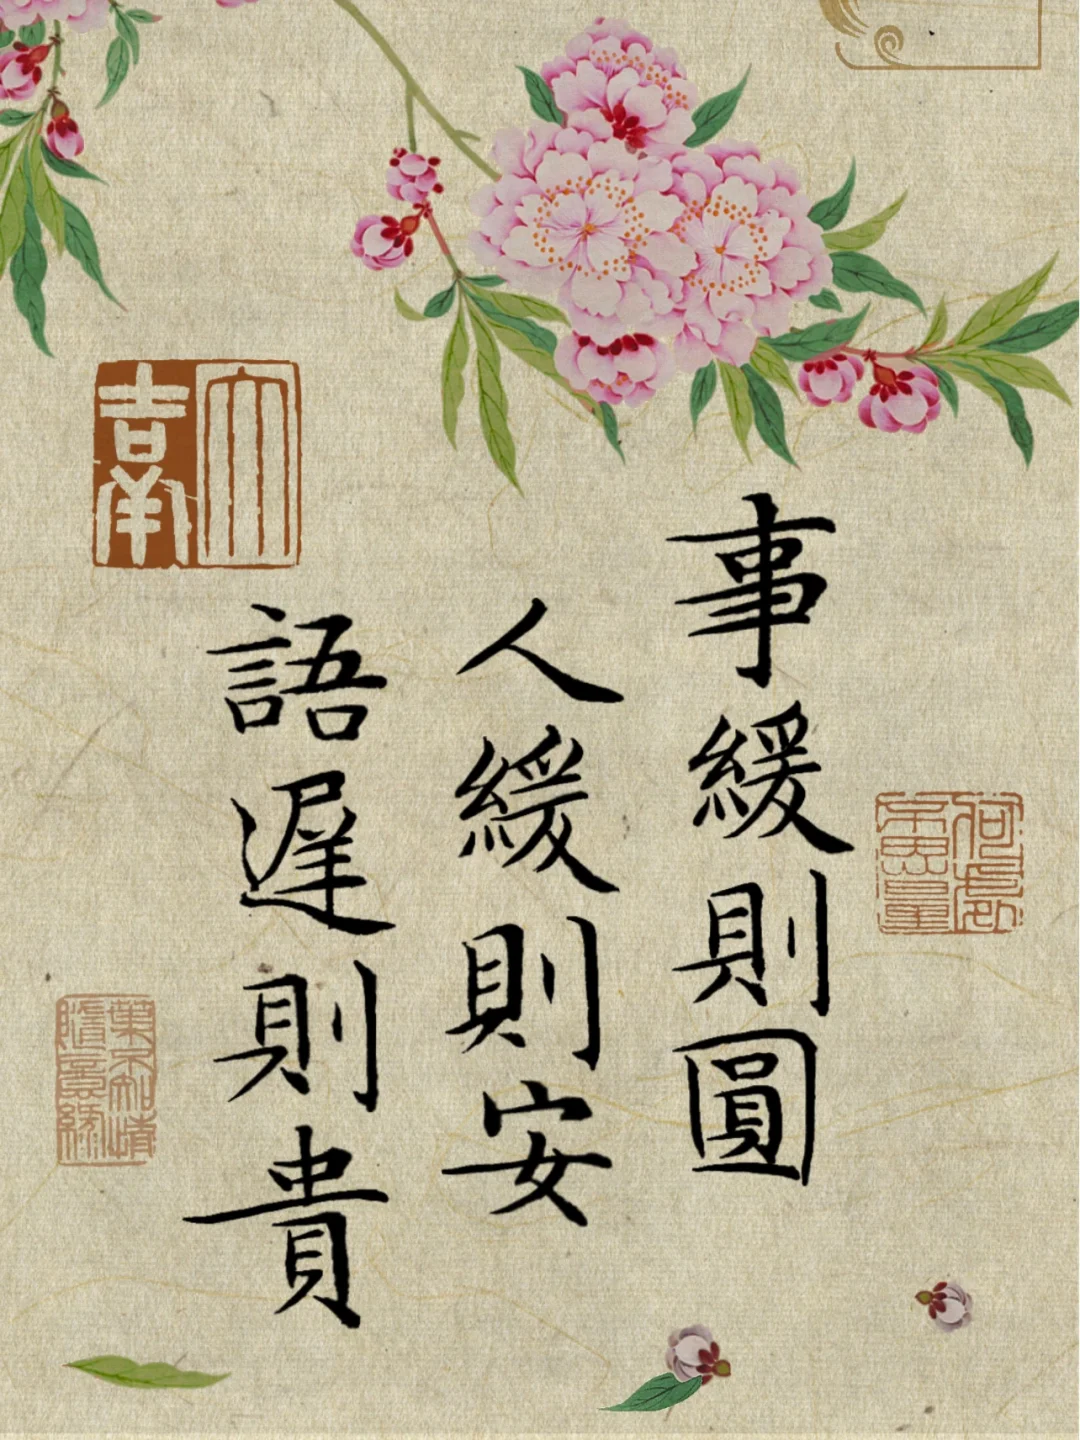 事緩則圓
人緩則安
語遲則貴